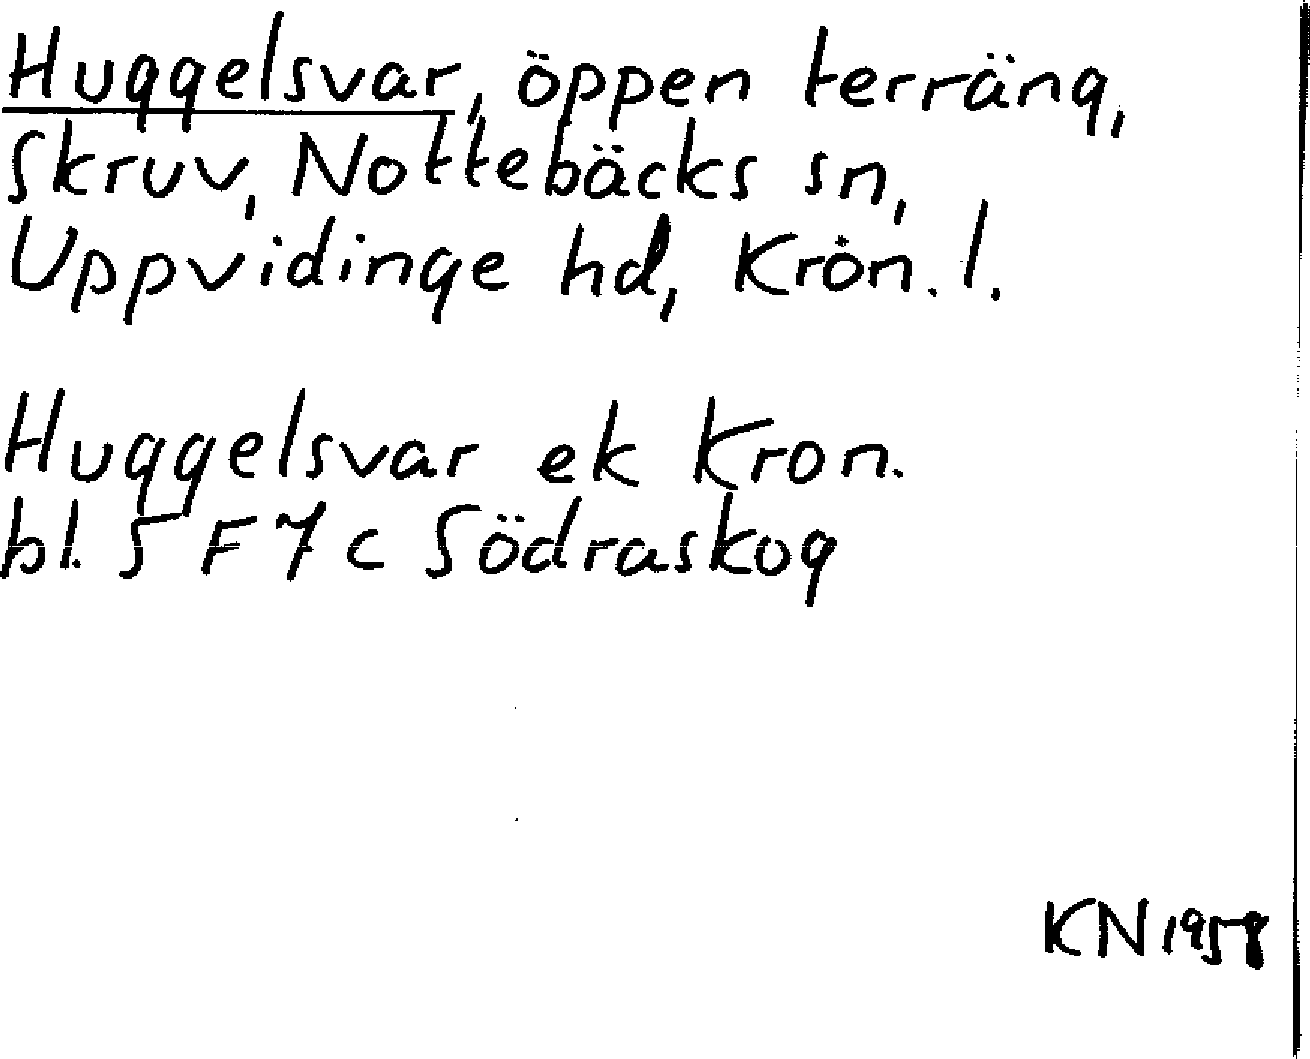 Huggelsvar, öppen terräng,
Skruv, Nottebäcks sn,
Uppvidinge hd, Kron. l.
Huggelsvar ek Kron.
bl. 5 F 7 c Södraskog
KN 1958